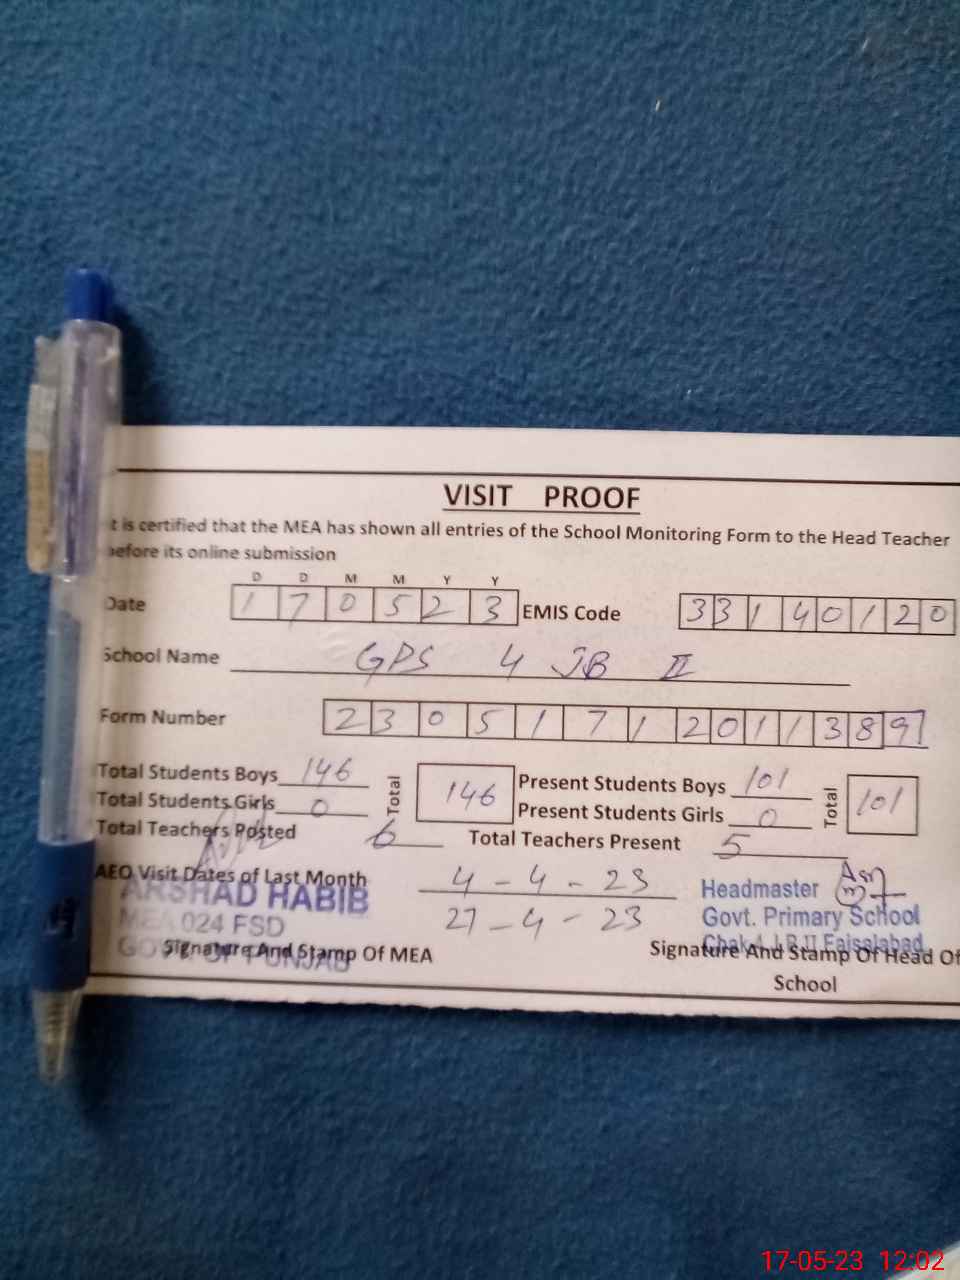 VISIT PROOF
t is certified that the MEA has shown all entries of the School Monitoring Form to the Head Teacher
before its online submission
D D M M Y Y
Date 1 7 0 5 2 3 EMIS Code 3 3 1 4 0 1 2 0
School Name GPS 4 JB II
Form Number 2 3 0 5 1 7 1 2 0 1 1 3 8 9
Total Students Boys 146 Total 146 Present Students Boys 101 Total 101
Total Students Girls 0 Present Students Girls 0
Total Teachers Posted 6 Total Teachers Present 5
AEO Visit Dates of Last Month 4-4-23
27-4-23
ARSHAD HABIB
MEA 024 FSD
GOVT OF PUNJAB
Signature And Stamp Of MEA
Headmaster
Govt. Primary School
Chak 4 J.B II Faisalabad
Signature And Stamp Of Head Of
School
17-05-23 12:02